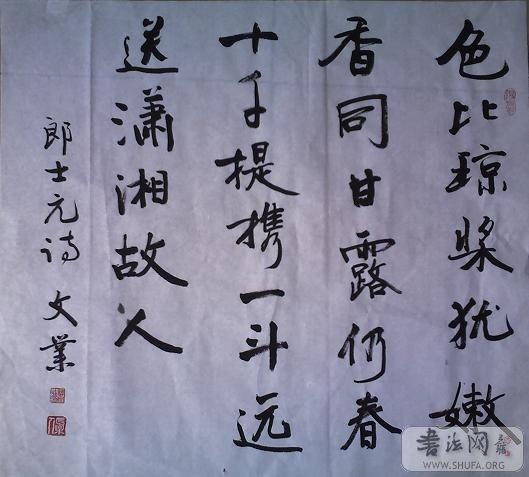 色比琼浆犹嫩
香同甘露仍春
十千提携一斗远
送潇湘故人
郎士元诗 文业
书法网
WWW.SHUFA.ORG